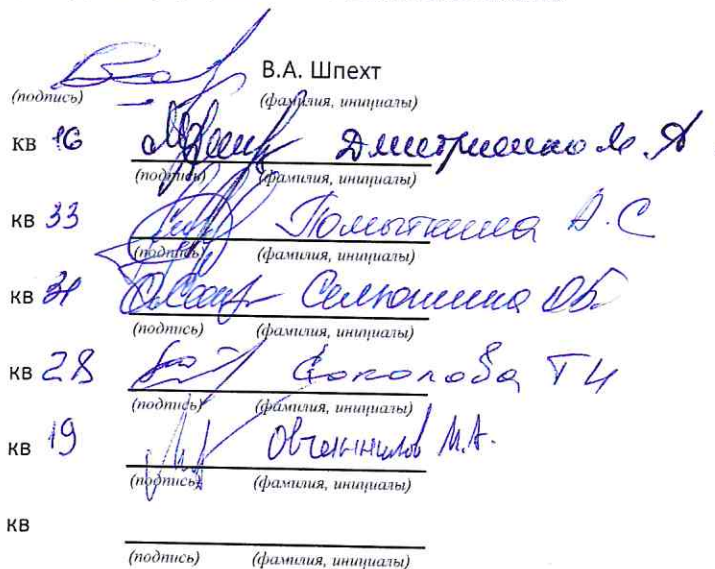 В.А. Шпехт
(подпись) (фамилия, инициалы)
кв 16 Дмитриенко М. А
(подпись) (фамилия, инициалы)
кв 33 Помыткина А. С
(подпись) (фамилия, инициалы)
кв 31 О.Б.
(подпись) (фамилия, инициалы)
кв 28 Соколова Т И
(подпись) (фамилия, инициалы)
кв 19 Овчинников М.А.
(подпись) (фамилия, инициалы)
кв
(подпись) (фамилия, инициалы)